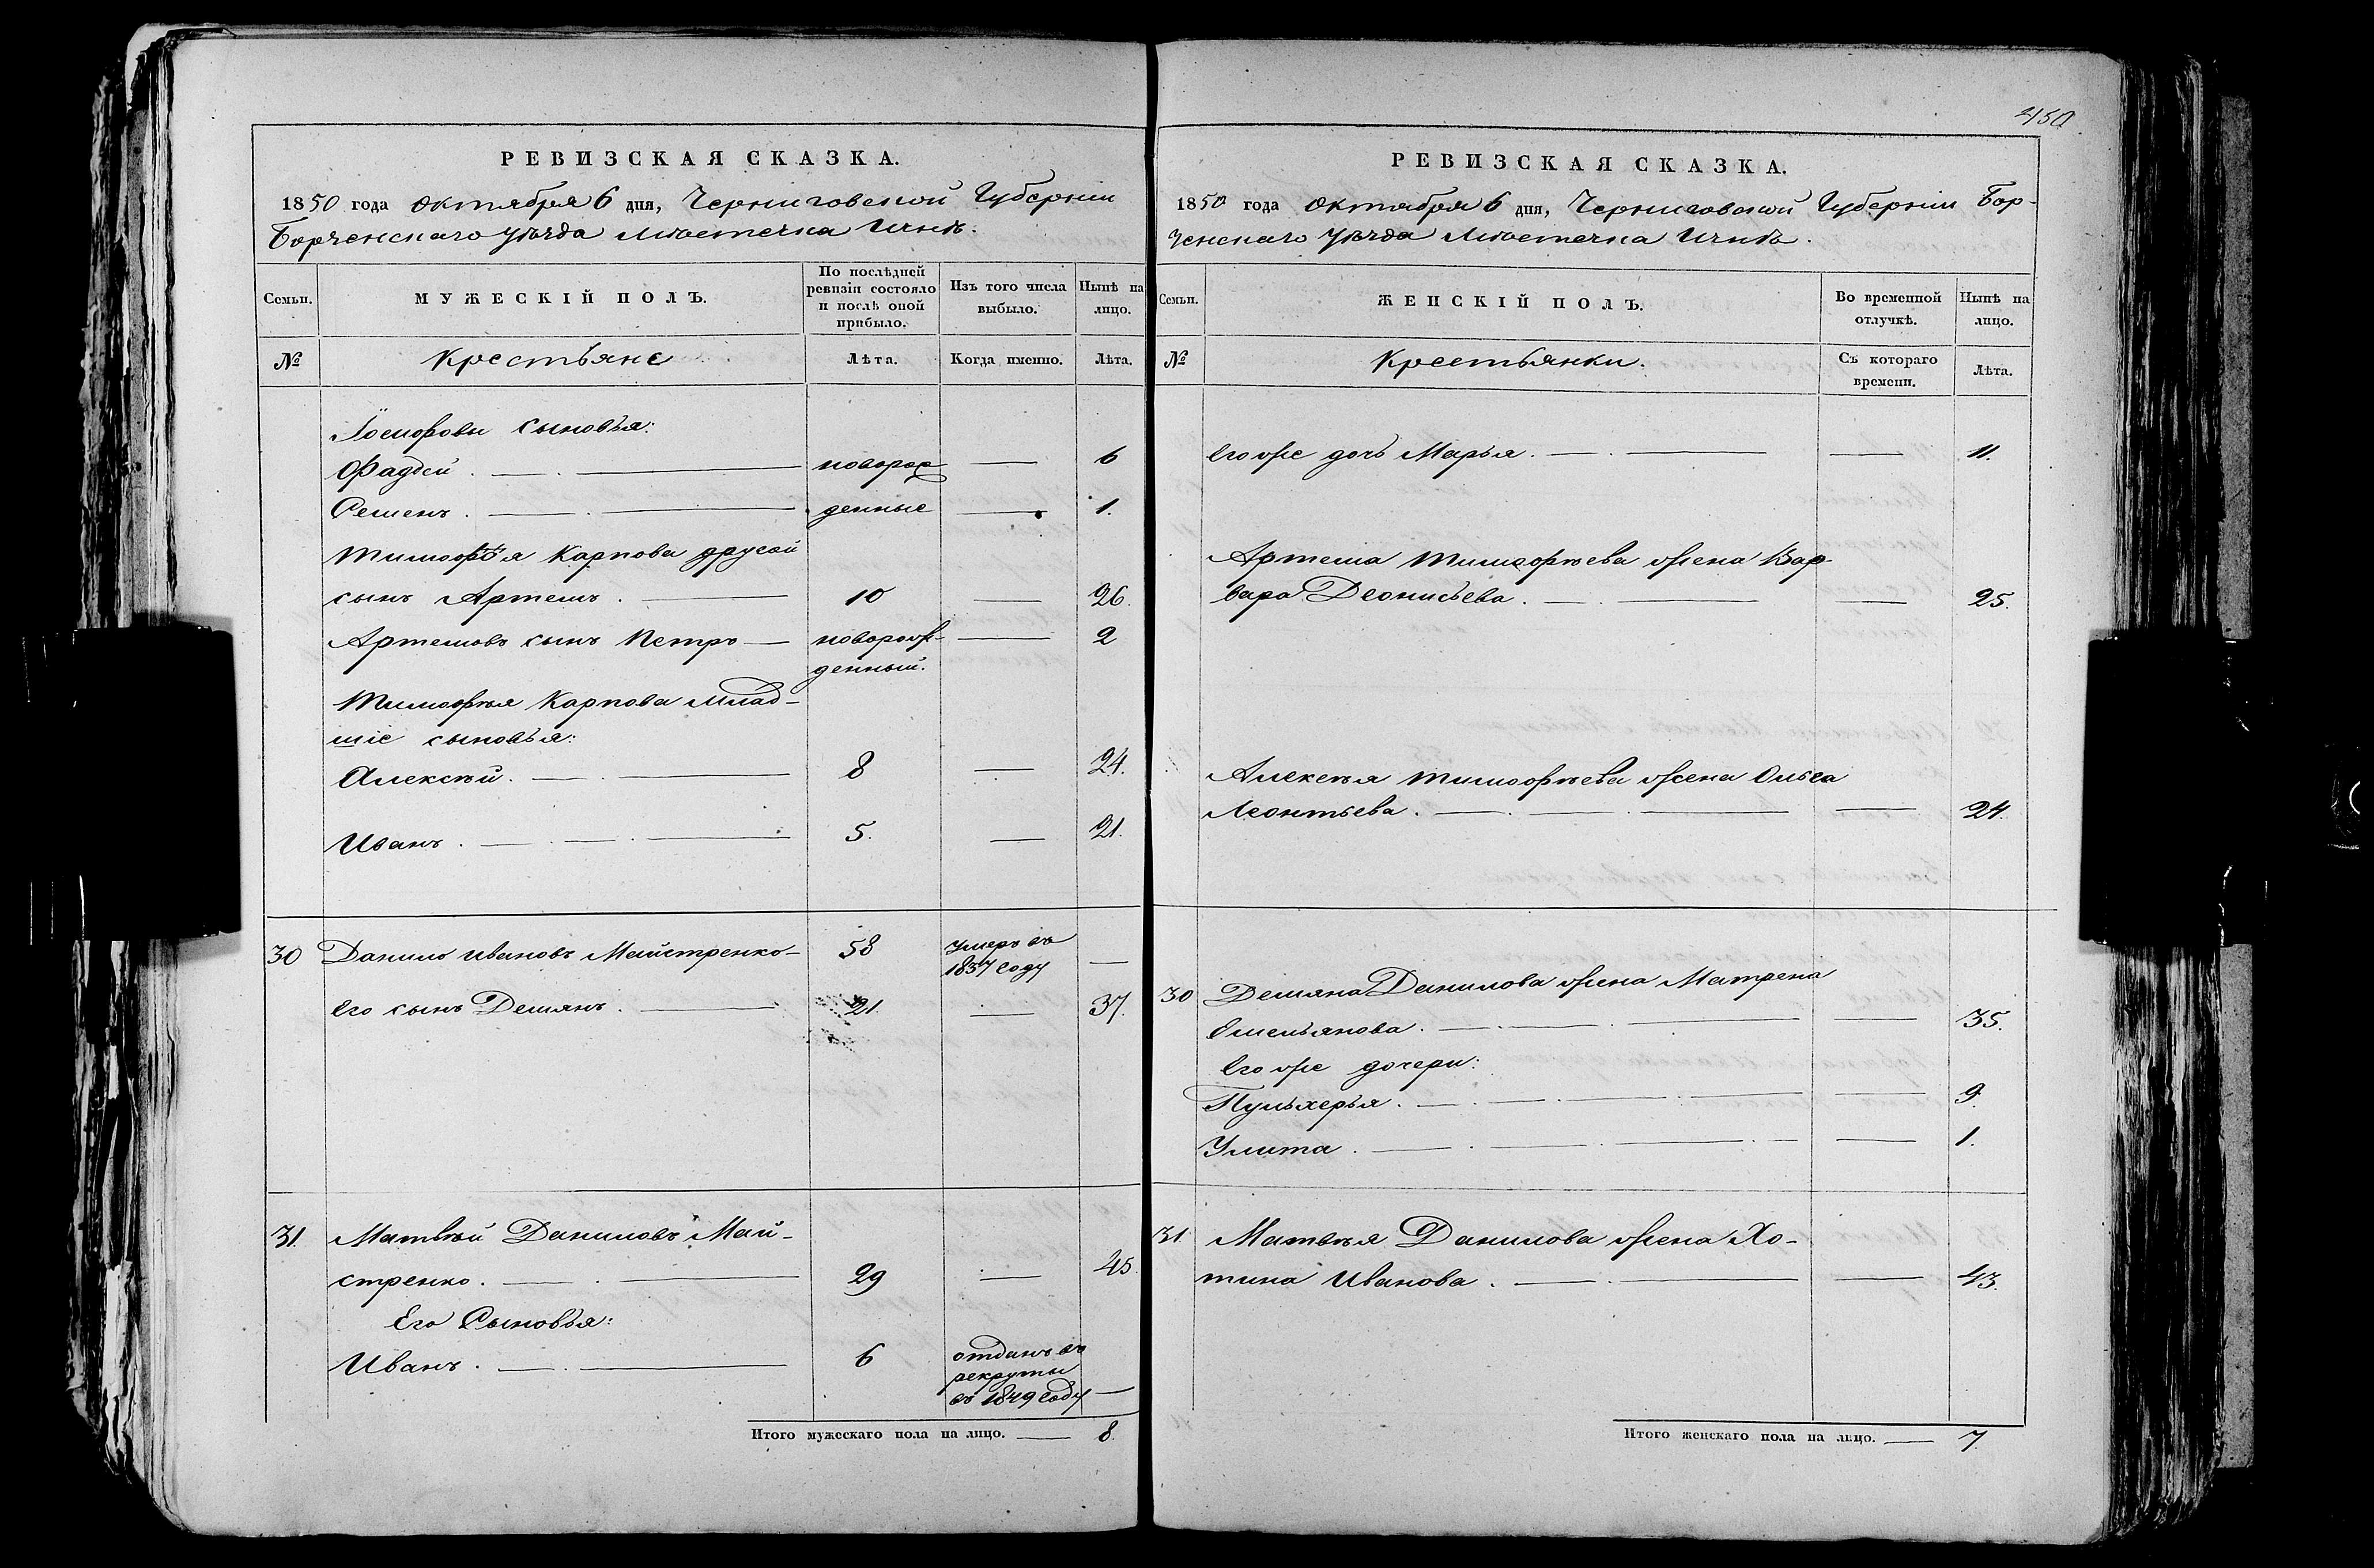 РЕВИЗСКАЯ СКАЗКА.
1850 года Октября 6 дня, Черниговской Губерніи
Борзенскаго Уѣзда Мѣстечка Ични.
Семьи.
МУЖЕСКІЙ ПОЛЪ.
По послѣдней
ревизіи состояло
и послѣ оной
прибыло.
Изъ того числа
выбыло.
Нынѣ на
лицо.
№
Крестьяне
Лѣта.
Когда именно.
Лѣта.
сыновья:
Фадѣй . — новорож — 6
Семенъ . — денные — 1.
Тимофѣя Карпова другой
сынъ Артемъ . — 10 — 26.
Артемовъ сынъ Петръ — новорож- — 2
денный.
Тимофѣя Карпова млад-
шіе сыновья:
Алексѣй . — 8 — 24.
Иванъ . — 5. — 21.
30 Данило Ивановъ Майстренко — 58 умеръ въ
1837 году —
Его сынъ Демянъ . — 21. — 37.
31. Матвѣй Даниловъ Май-
стренко . — 29 — 45.
Его Сыновья:
Иванъ . — 6 отданъ въ
рекруты
въ 1849 году —
Итого мужескаго пола на лицо. — 8.
450
РЕВИЗСКАЯ СКАЗКА.
1850 года Октября 6 дня, Черниговской Губерніи Бор-
зенскаго Уѣзда Мѣстечка Ични.
Семьи.
ЖЕНСКІЙ ПОЛЪ.
Во временной
отлучкѣ.
Нынѣ на
лицо.
№
Крестьянки.
Съ котораго
времени.
Лѣта.
Его же дочь Марья . — — 11.
Артема Тимофѣева жена Вар-
вара Деонисьева . — — 25.
Алексѣя Тимофѣева жена Ольга
Леонтьева . — — 24.
30 Демяна Данилова жена Матрена
Омельянова . — — 35.
Его же дочери:
Пульхерья . — — 9.
Улита . — — 1.
31 Матвѣя Данилова жена Хо-
тина Иванова . — — 43.
Итого женскаго пола на лицо. — 7.